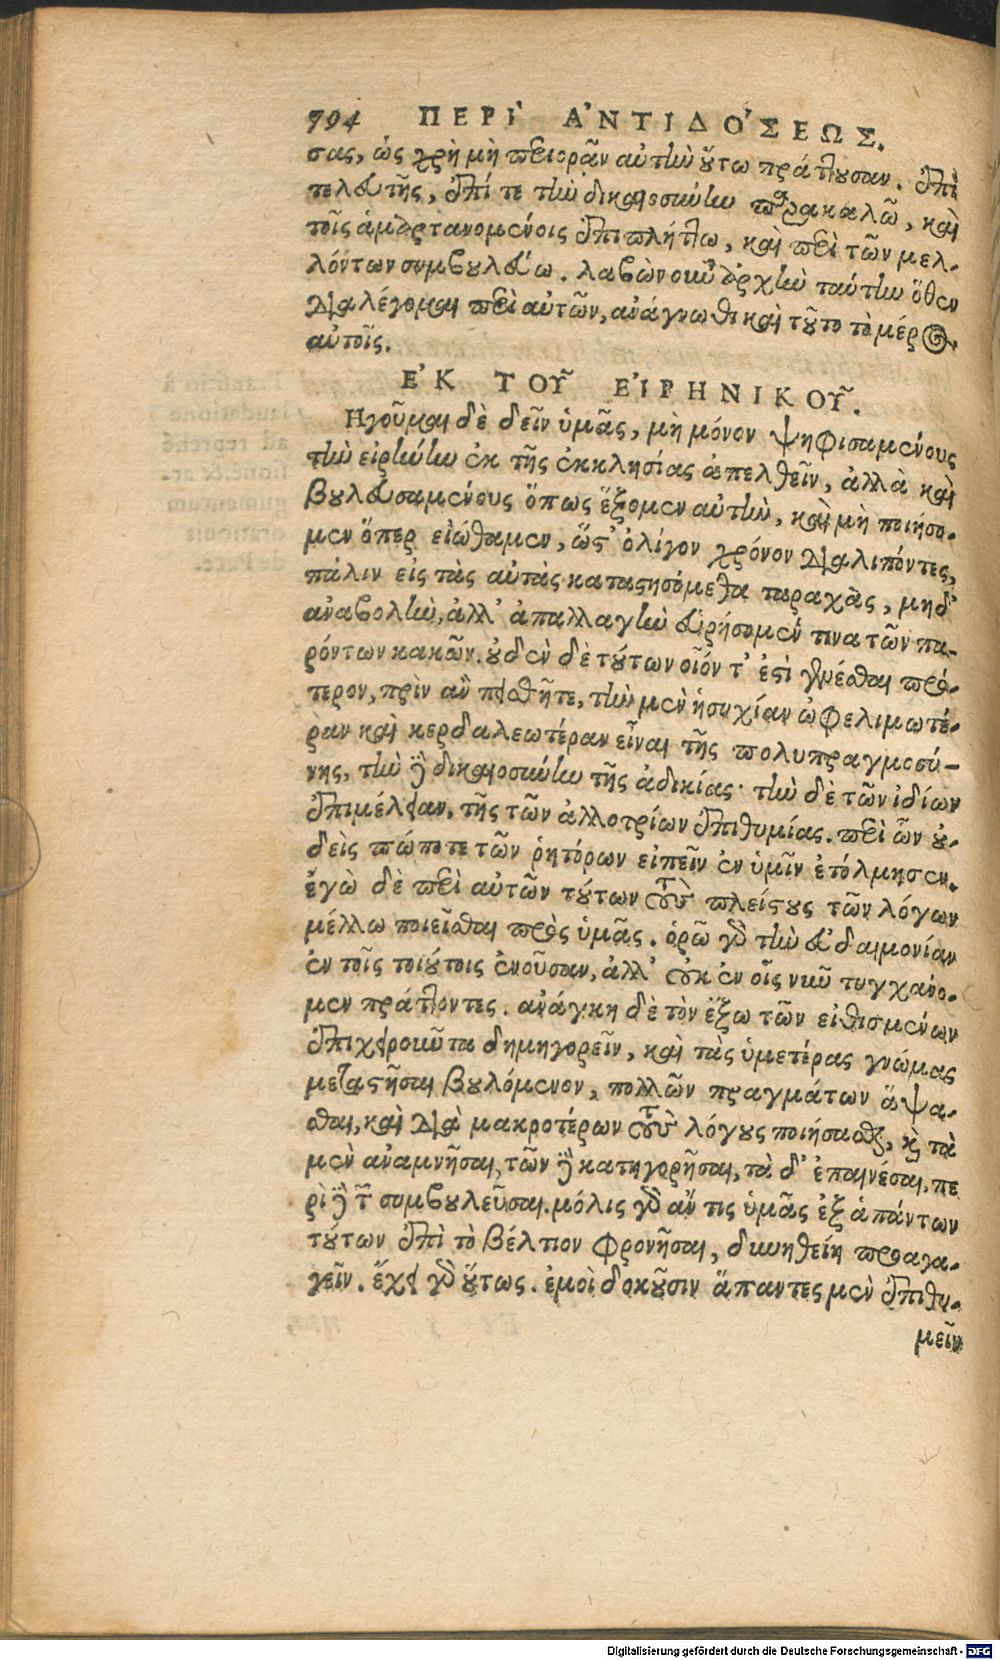 794 ΠΕΡΙ' Α'ΝΤΙΔΟ'ΣΕΩΣ.
σας, ὡς χρὴ μὴ περιορᾶν αὐτὴν ὕτω πράττουσαν. ἐπὶ
τελευτῆς, ἐπί τε τὴν δικαιοσύνην παρακαλῶ, καὶ
τοῖς ἁμαρτανομένοις ἐπιπλήττω, καὶ περὶ τῶν μελ-
λόντων συμβουλεύω. λαβὼν οὖν ἀρχὴν ταύτην ὅθεν
διαλέγομαι περὶ αὐτῶν, ἀνάγνωθι καὶ τοῦτο τὸ μέρος
αὐτοῖς.
Ε'Κ ΤΟΥ͂ ΕἸΡΗΝΙΚΟΥ͂.
Ηγοῦμαι δὲ δεῖν ὑμᾶς, μὴ μόνον ψηφισαμένους
τὴν εἰρήνην ἐκ τῆς ἐκκλησίας ἀπελθεῖν, ἀλλὰ καὶ
βουλευσαμένους ὅπως ἕξομεν αὐτὴν, καὶ μὴ ποιήσο-
μεν ὅπερ εἰώθαμεν, ὥστ' ὀλίγον χρόνον διαλιπόντες,
πάλιν εἰς τὰς αὐτὰς καταστησόμεθα ταραχὰς, μηδ'
ἀναβολὴν, ἀλλ' ἀπαλλαγὴν εὑρήσομέν τινα τῶν πα-
ρόντων κακῶν. οὐδὲν δὲ τούτων οἷόν τ' ἐστὶ γενέσθαι πρό-
τερον, πρὶν ἂν πεισθῆτε, τὴν μὲν ἡσυχίαν ὠφελιμωτέ-
ραν καὶ κερδαλεωτέραν εἶναι τῆς πολυπραγμοσύ-
νης, τὴν δὲ δικαιοσύνην τῆς ἀδικίας· τὴν δὲ τῶν ἰδίων
ἐπιμέλειαν, τῆς τῶν ἀλλοτρίων ἐπιθυμίας. περὶ ὧν οὐ-
δεὶς πώποτε τῶν ῥητόρων εἰπεῖν ἐν ὑμῖν ἐτόλμησεν.
ἐγὼ δὲ περὶ αὐτῶν τούτων τοὺς πλείστους τῶν λόγων
μέλλω ποιεῖσθαι πρὸς ὑμᾶς. ὁρῶ γὰρ τὴν εὐδαιμονίαν
ἐν τοῖς τοιούτοις ἐνοῦσαν, ἀλλ' οὐκ ἐν οἷς νῦν τυγχάνο-
μεν πράττοντες. ἀνάγκη δὲ τὸν ἔξω τῶν εἰθισμένων
ἐπιχειροῦντα δημηγορεῖν, καὶ τὰς ὑμετέρας γνώμας
μεταστῆσαι βουλόμενον, πολλῶν πραγμάτων ἅψα-
σθαι, καὶ διὰ μακροτέρων τοὺς λόγους ποιήσασθαι, καὶ τὰ
μὲν ἀναμνῆσαι, τῶν δὲ κατηγορῆσαι, τὰ δ' ἐπαινέσαι, πε
ρὶ δὲ τῶν συμβουλεῦσαι. μόλις γὰρ ἄν τις ὑμᾶς ἐξ ἁπάντων
τούτων ἐπὶ τὸ βέλτιον φρονῆσαι, δυνηθείη προαγα-
γεῖν. ἔχει γὰρ οὕτως. ἐμοὶ δοκοῦσιν ἅπαντες μὲν ἐπιθυ-
μεῖν
Digitalisierung gefördert durch die Deutsche Forschungsgemeinschaft - DFG